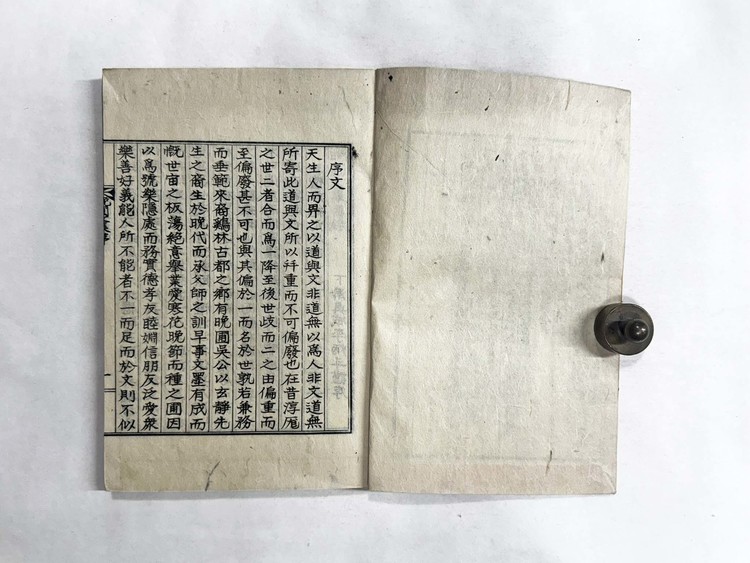 序文
天生人而畀之以道與文非道無以爲人非文道無
所寄此道與文所以幷重而不可偏廢也在昔淳厖
之世二者合而爲一降至後世歧而二之由偏重而
至偏廢甚不可也與其偏於一而名於世孰若兼務
而垂範來裔鷄林古都之鄕有晩圃吳公以玄靜先
生之裔生於晩代而承父師之訓早事文墨有成而
慨世宙之板蕩絶意擧業愛寒花晩節而種之圃因
以爲號樂隱處而務實德孝友睦婣信朋友泛愛衆
樂善好義能人所不能者不一而足而於文則不似